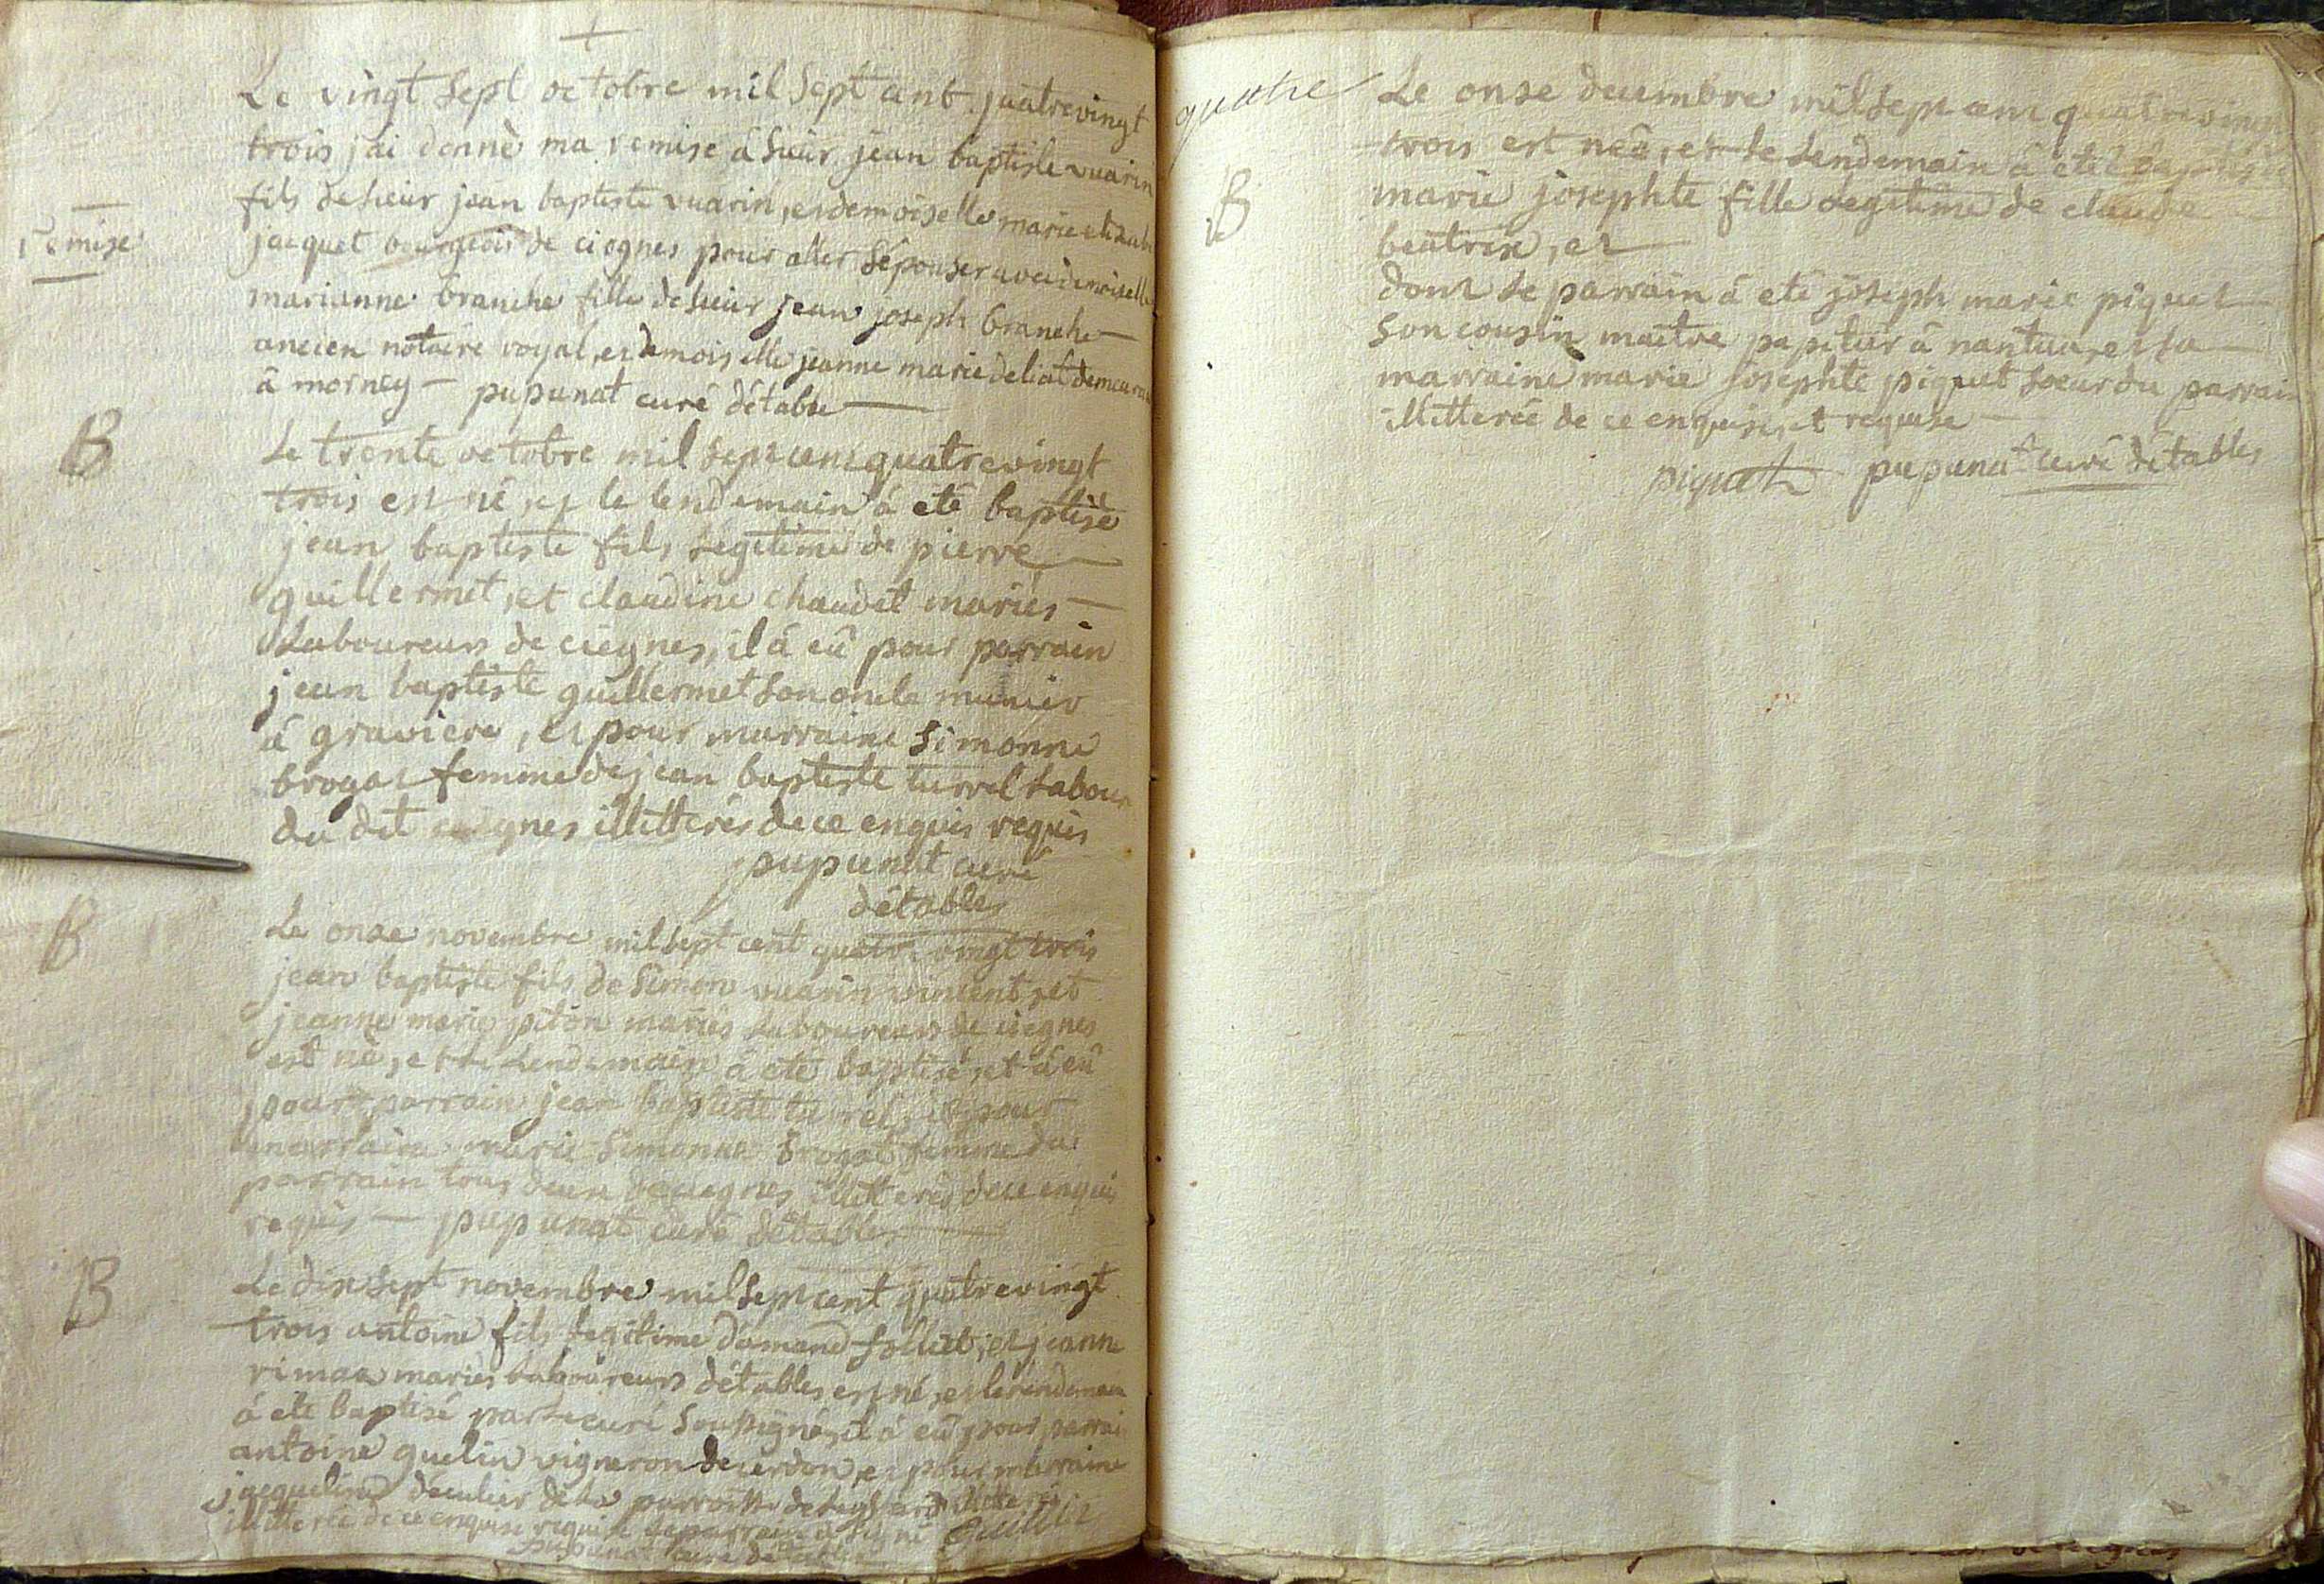 Le vingt sept octobre mil sept cent quatrevingt
trois jai donné ma remise á sieur jean baptiste vuarin
fils de sieur jean baptiste vuarin, et demoiselle marie
remise
jacquet bourgeois de ciegnes pour aller sépouser avec demoiselle
marianne branche fille de sieur jean joseph branche
ancien notaire royal, et demoiselle jeanne marie deliat
á morney pupunat curé détable
B
Le trente octobre mil sept cent quatrevingt
trois est né, et le lendemain á eté baptisé
jean baptiste fils legitime de pierre
guillermet, et claudine chaudet mariés
Laboureurs de ciegnes, il á eû pour parrain
jean baptiste guillermet son oncle munier
á graviere, et pour marraine simonne
brogat femme de jean baptiste turrel Labour
du dit ciegnes illitterés de ce enquis requis
pupunat curé
détables
B
Le onze novembre mil sept cent quatre vingt trois
jean baptiste fils de Simon vuarin vincent, et
jeanne marie piton mariés Laboureurs de ciegnes
est né, et le Lendemain á eté baptisé, et á eû
pour parrain jean baptiste turrel, et pour
marraine marie Simonne brogat femme du
parrain tous deux de ciegnes illitterés de ce enquis
requis pupunat curé détables
B
Le dix sept novembre mil sept cent quatrevingt
trois antoine fils legitime damand folliet, et jeanne
mariés laboureurs détables est né, et le lendemain
á eté baptisé par le curé soussigné, il á eû pour parrai
antoine guelin vigneron de cerdon, et pour marraine
jacqueline de la parroisse de
illitterée de ce enquise requise le parrain á signé
pupunat curé détables
quatre
Le onze decembre mil sept cent quatrevingt
trois est née, et le Lendemain á eté baptisée
B
marie josephte fille Legitime de claude
beatrix, et
dont le parrain á eté joseph marie piquet
Son cousin maitre papetier á nantua, et la
marraine marie josephte piquet soeur du parrain
illitterée de ce enquise, et requise
piquet pupunat curé détables